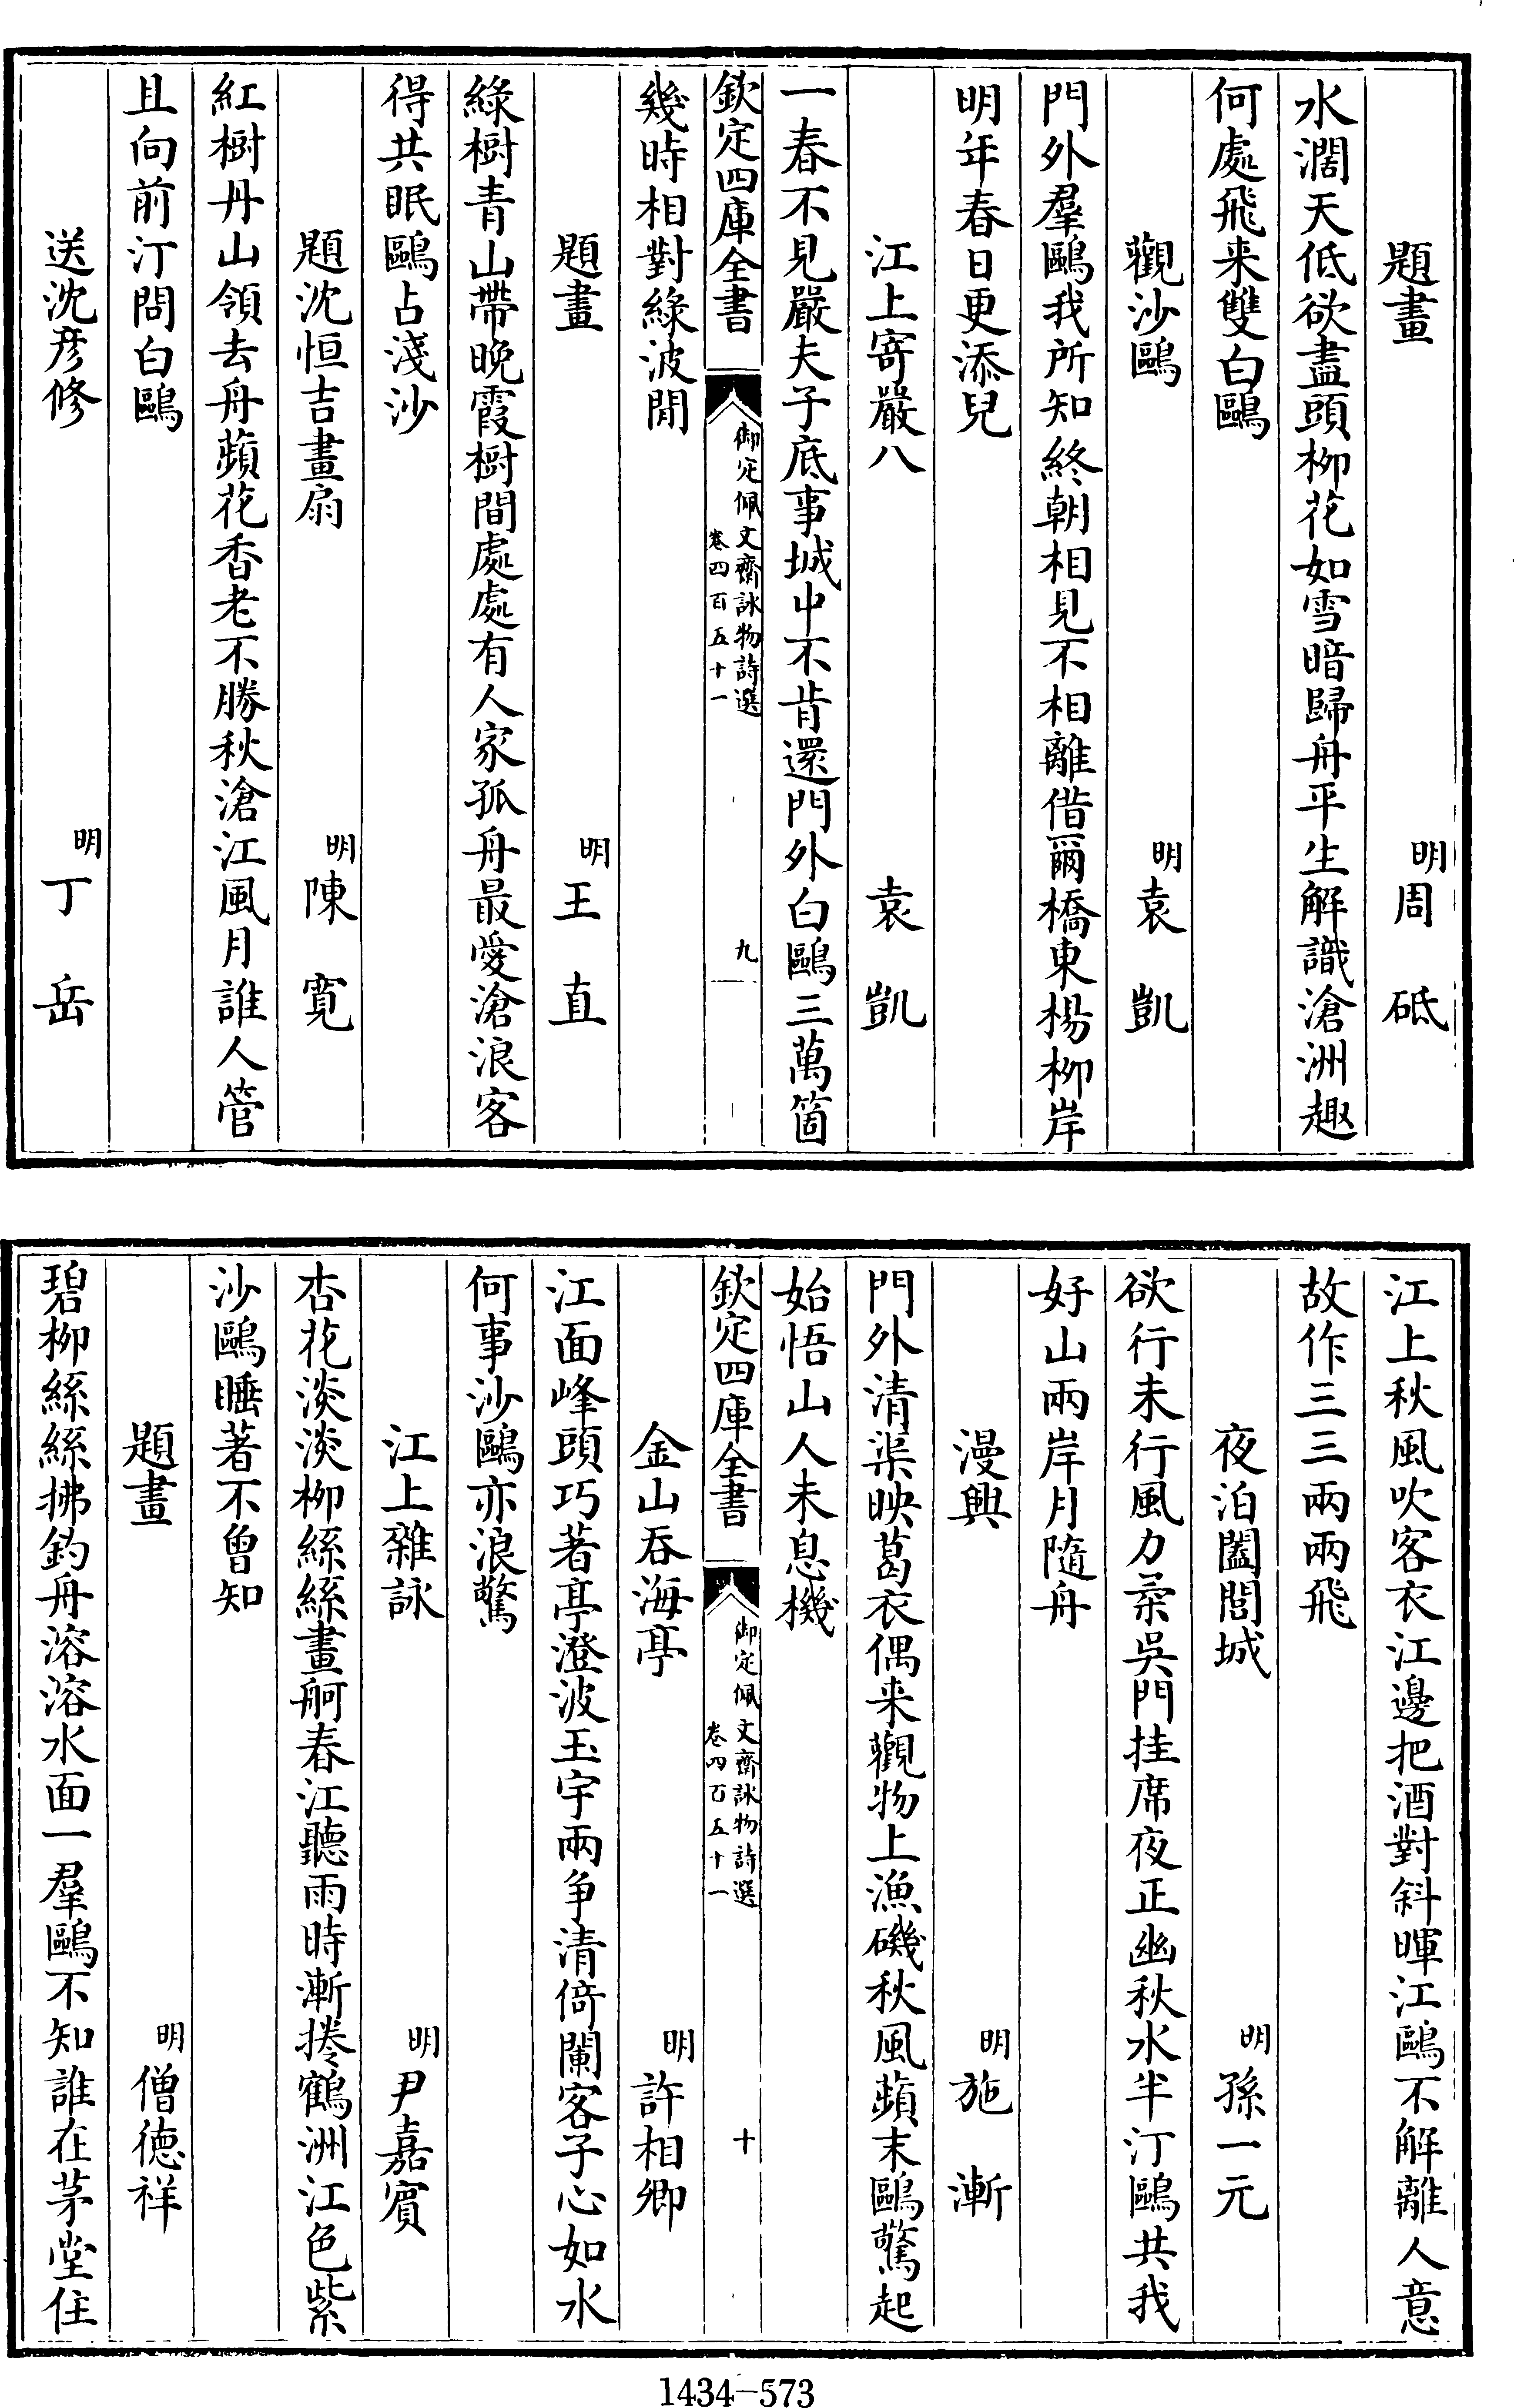 題畫　明周砥
水濶天低欲盡頭柳花如雪暗歸舟平生解識滄洲趣
何處飛来雙白鷗
觀沙鷗　明袁凱
門外羣鷗我所知終朝相見不相離借爾橋東楊柳岸
明年春日更添兒
江上寄嚴八　袁凱
一春不見嚴夫子底事城中不肯還門外白鷗三萬箇
欽定四庫全書　御定佩文齋詠物詩選 卷四百五十一　九
幾時相對綠波閒
題畫　明王直
綠樹青山帶晚霞樹間處處有人家孤舟最愛滄浪客
得共眠鷗占淺沙
題沈恒吉畫扇　明陳寛
紅樹丹山領去舟蘋花香老不勝秋滄江風月誰人管
且向前汀問白鷗
送沈彥修　明丁岳
江上秋風吹客衣江邊把酒對斜暉江鷗不解離人意
故作三三兩兩飛
夜泊闔閭城　明孫一元
欲行未行風力柔吳門挂席夜正幽秋水半汀鷗共我
好山兩岸月隨舟
漫興　明施漸
門外清渠映葛衣偶来觀物上漁磯秋風蘋末鷗驚起
始悟山人未息機
欽定四庫全書　御定佩文齋詠物詩選 卷四百五十一　十
金山吞海亭　明許相卿
江面峰頭巧著亭澄波玉宇兩争清倚闌客子心如水
何事沙鷗亦浪驚
江上雜詠　明尹嘉賓
杏花淡淡柳絲絲畫舸春江聽雨時漸捲鶴洲江色紫
沙鷗睡著不曾知
題畫　明僧德祥
碧柳絲絲拂釣舟溶溶水面一羣鷗不知誰在茅堂住
1434-573